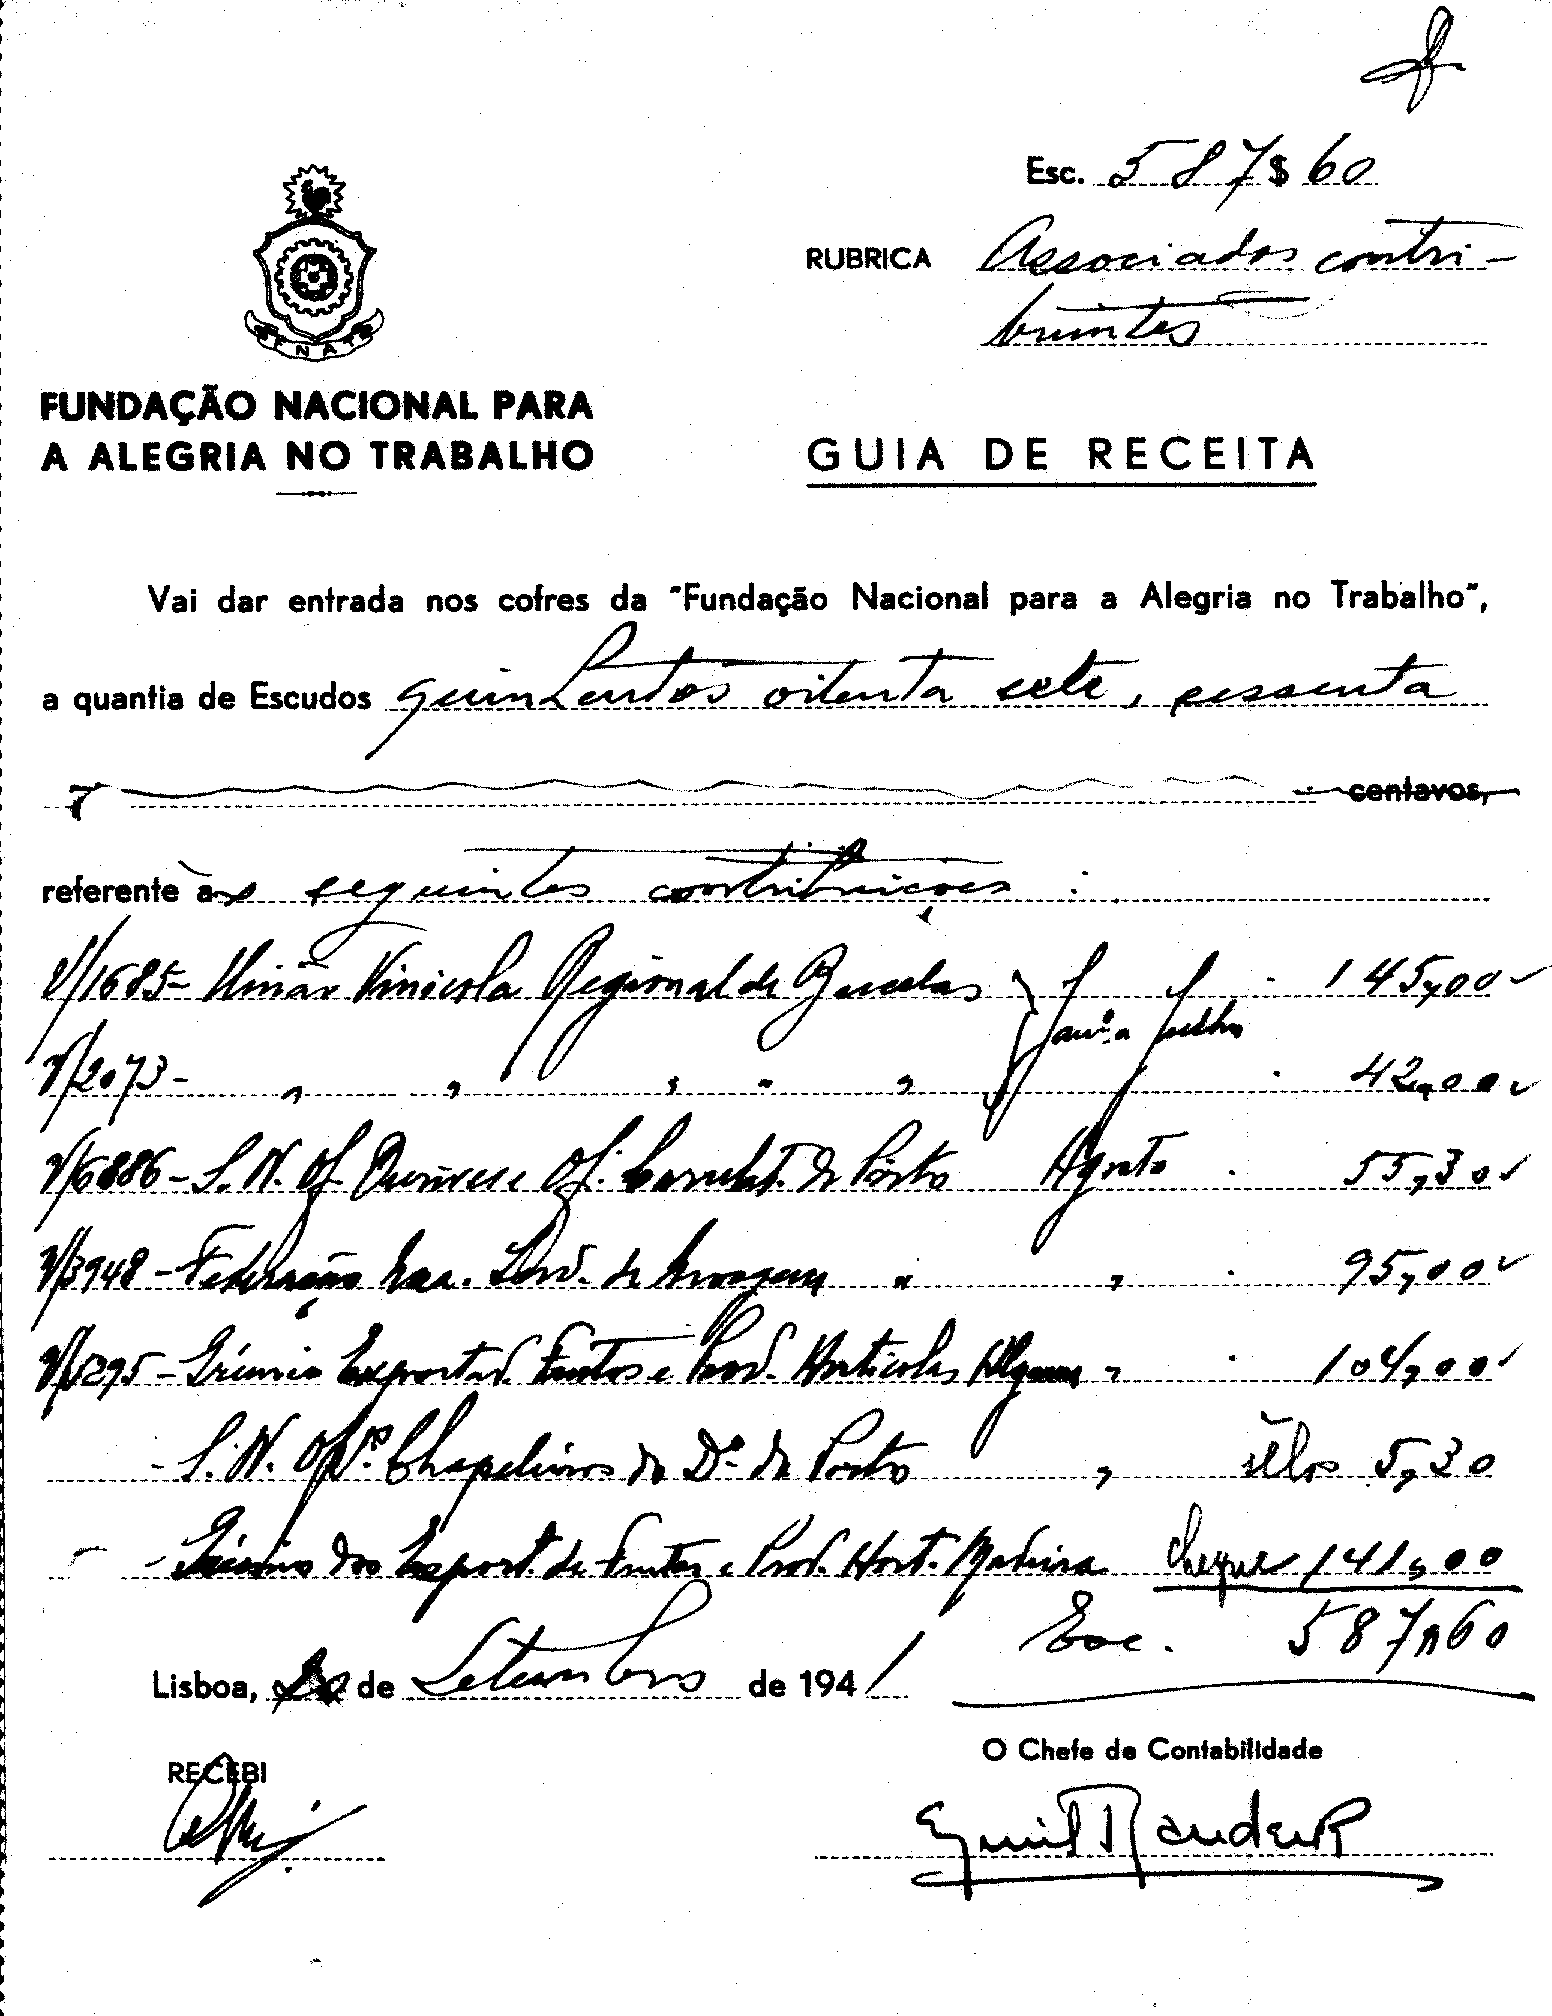 Esc. 587$60
RUBRICA Associados contri-
buintes
FENAT
FUNDAÇÃO NACIONAL PARA
A ALEGRIA NO TRABALHO
GUIA DE RECEITA
Vai dar entrada nos cofres da "Fundação Nacional para a Alegria no Trabalho",
a quantia de Escudos quinhentos oitenta sete, sessenta
centavos,
referente às seguintes contribuições:
V/1685- União Vinicola Regional de Bucelas 145,00
Janº a Julho
V/2073- " " " " " 42,00
V/6886- S. N. Of. Ourives e Of. Correlat. do Porto Agosto 55,30
V/3948- Federação Nac. Ind. de Moagem " " 95,00
Grémio Exportad. Frutos e Prod. Horticolas Algarve " 104,00
- S. N. Opºs Chapeleiros do Dº do Porto " sêlos 5,30
- Grémio dos Export. de Frutas e Prod. Hort. Madeira cheque 141,00
Esc. 587,60
Lisboa, de Setembro de 1941
O Chefe de Contabilidade
RECEBI